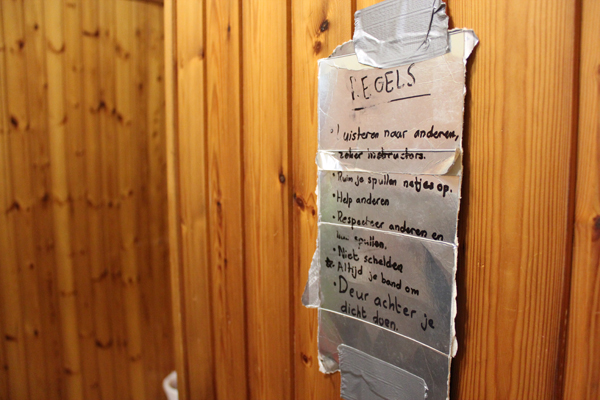 REGELS
· Luisteren naar anderen,
zeker instructors.
· Ruim je spullen netjes op.
· Help anderen
· Respecteer anderen en
spullen.
· Niet schelden
· Altijd je band om
· Deur achter je
dicht doen.